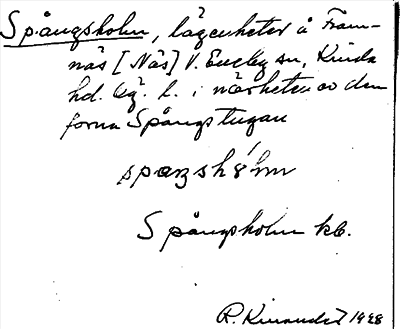 Spångsholm, lägenheter å Fram-
näs [Näs] V. Eneby sn, Kinda
hd. Ög. l. i närheten av den
forna Spångstugan
Spångsholm kb.
R. Kinander 1928